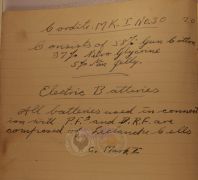 Cordite M.K. I No 30 20
Consists of 58% Gun Cotton
37% Nitro Glycerine
5% Min Jelly.
Electric Batteries
All batteries used in connect
ion with P.F.s and D.R.F. are
composed of Leclanche Cells